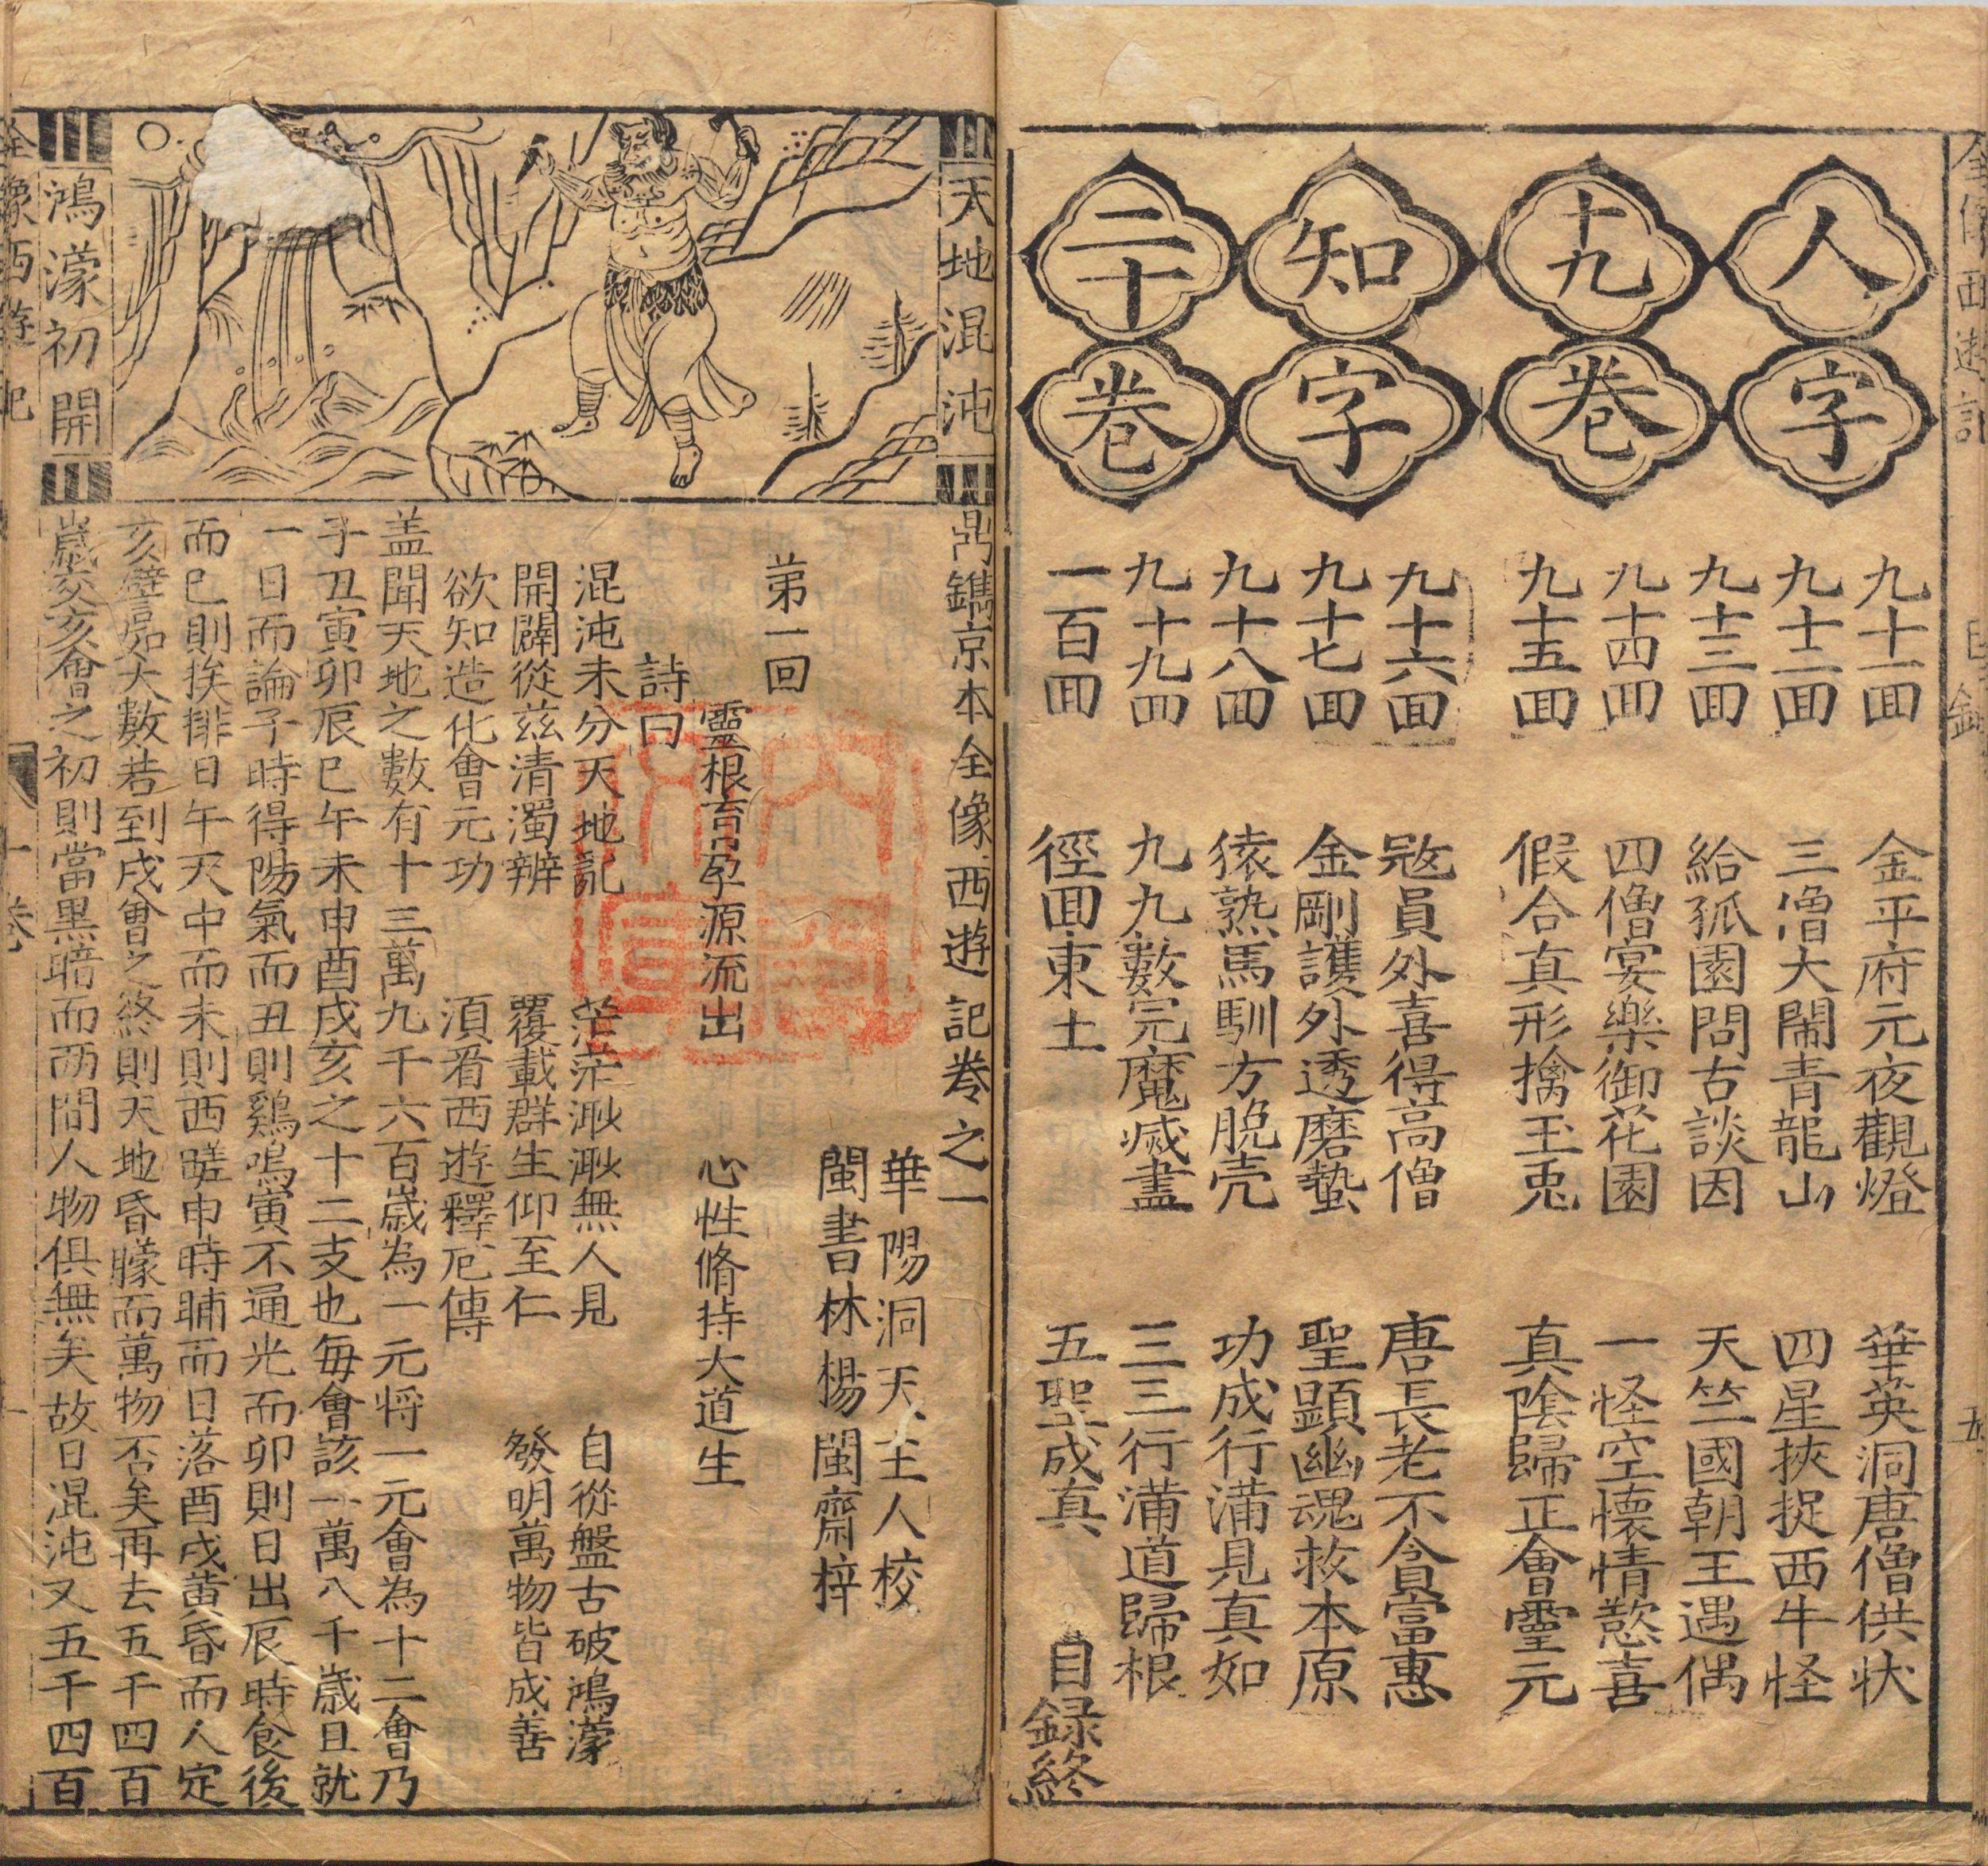 全像西遊記
目錄
五
人字
十九卷
知字
二十卷
九十一囬 金平府元夜觀燈 華英洞唐僧供状
九十二囬 三僧大鬧青龍山 四星挾捉西牛怪
九十三囬 給孤園問古談因 天竺國朝王遇偶
九十四囬 四僧宴樂御花園 一怪空懷情慾喜
九十五囬 假合真形擒玉兎 真陰歸正會靈元
九十六囬 冦員外喜得高僧 唐長老不貪富惠
九十七囬 金剛護外透磨蟄 聖顯幽魂救本原
九十八囬 猿熟馬馴方脫壳 功成行滿見真如
九十九囬 九九數完魔滅盡 三三行滿道歸根
一百囬 徑囬東土 五聖成真
目録終
天地混沌
鴻濛初開
鼎鐫京本全像西遊記卷之一
華陽洞天主人校
閩書林楊閩齋梓
第一回
靈根育孕源流出 心性脩持大道生
詩曰
混沌未分天地亂 茫茫渺渺無人見 自從盤古破鴻濛
開闢從兹清濁辨 覆載群生仰至仁 發明萬物皆成善
欲知造化會元功 須看西遊釋厄傳
盖聞天地之數有十三萬九千六百歲為一元將一元會為十二會乃
子丑寅卯辰巳午未申酉戌亥之十二支也每會該一萬八千歲且就
一日而論子時得陽氣而丑則鷄鳴寅不通光而卯則日出辰時食後
而巳則挨排日午天中而未則西蹉申時晡而日落酉戌黄昏而人定
亥譬如大數若到戌會之終則天地昏矇而萬物否矣再去五千四百
歲交亥會之初則當黑暗而两間人物俱無矣故曰混沌又五千四百
全像西遊記
一卷